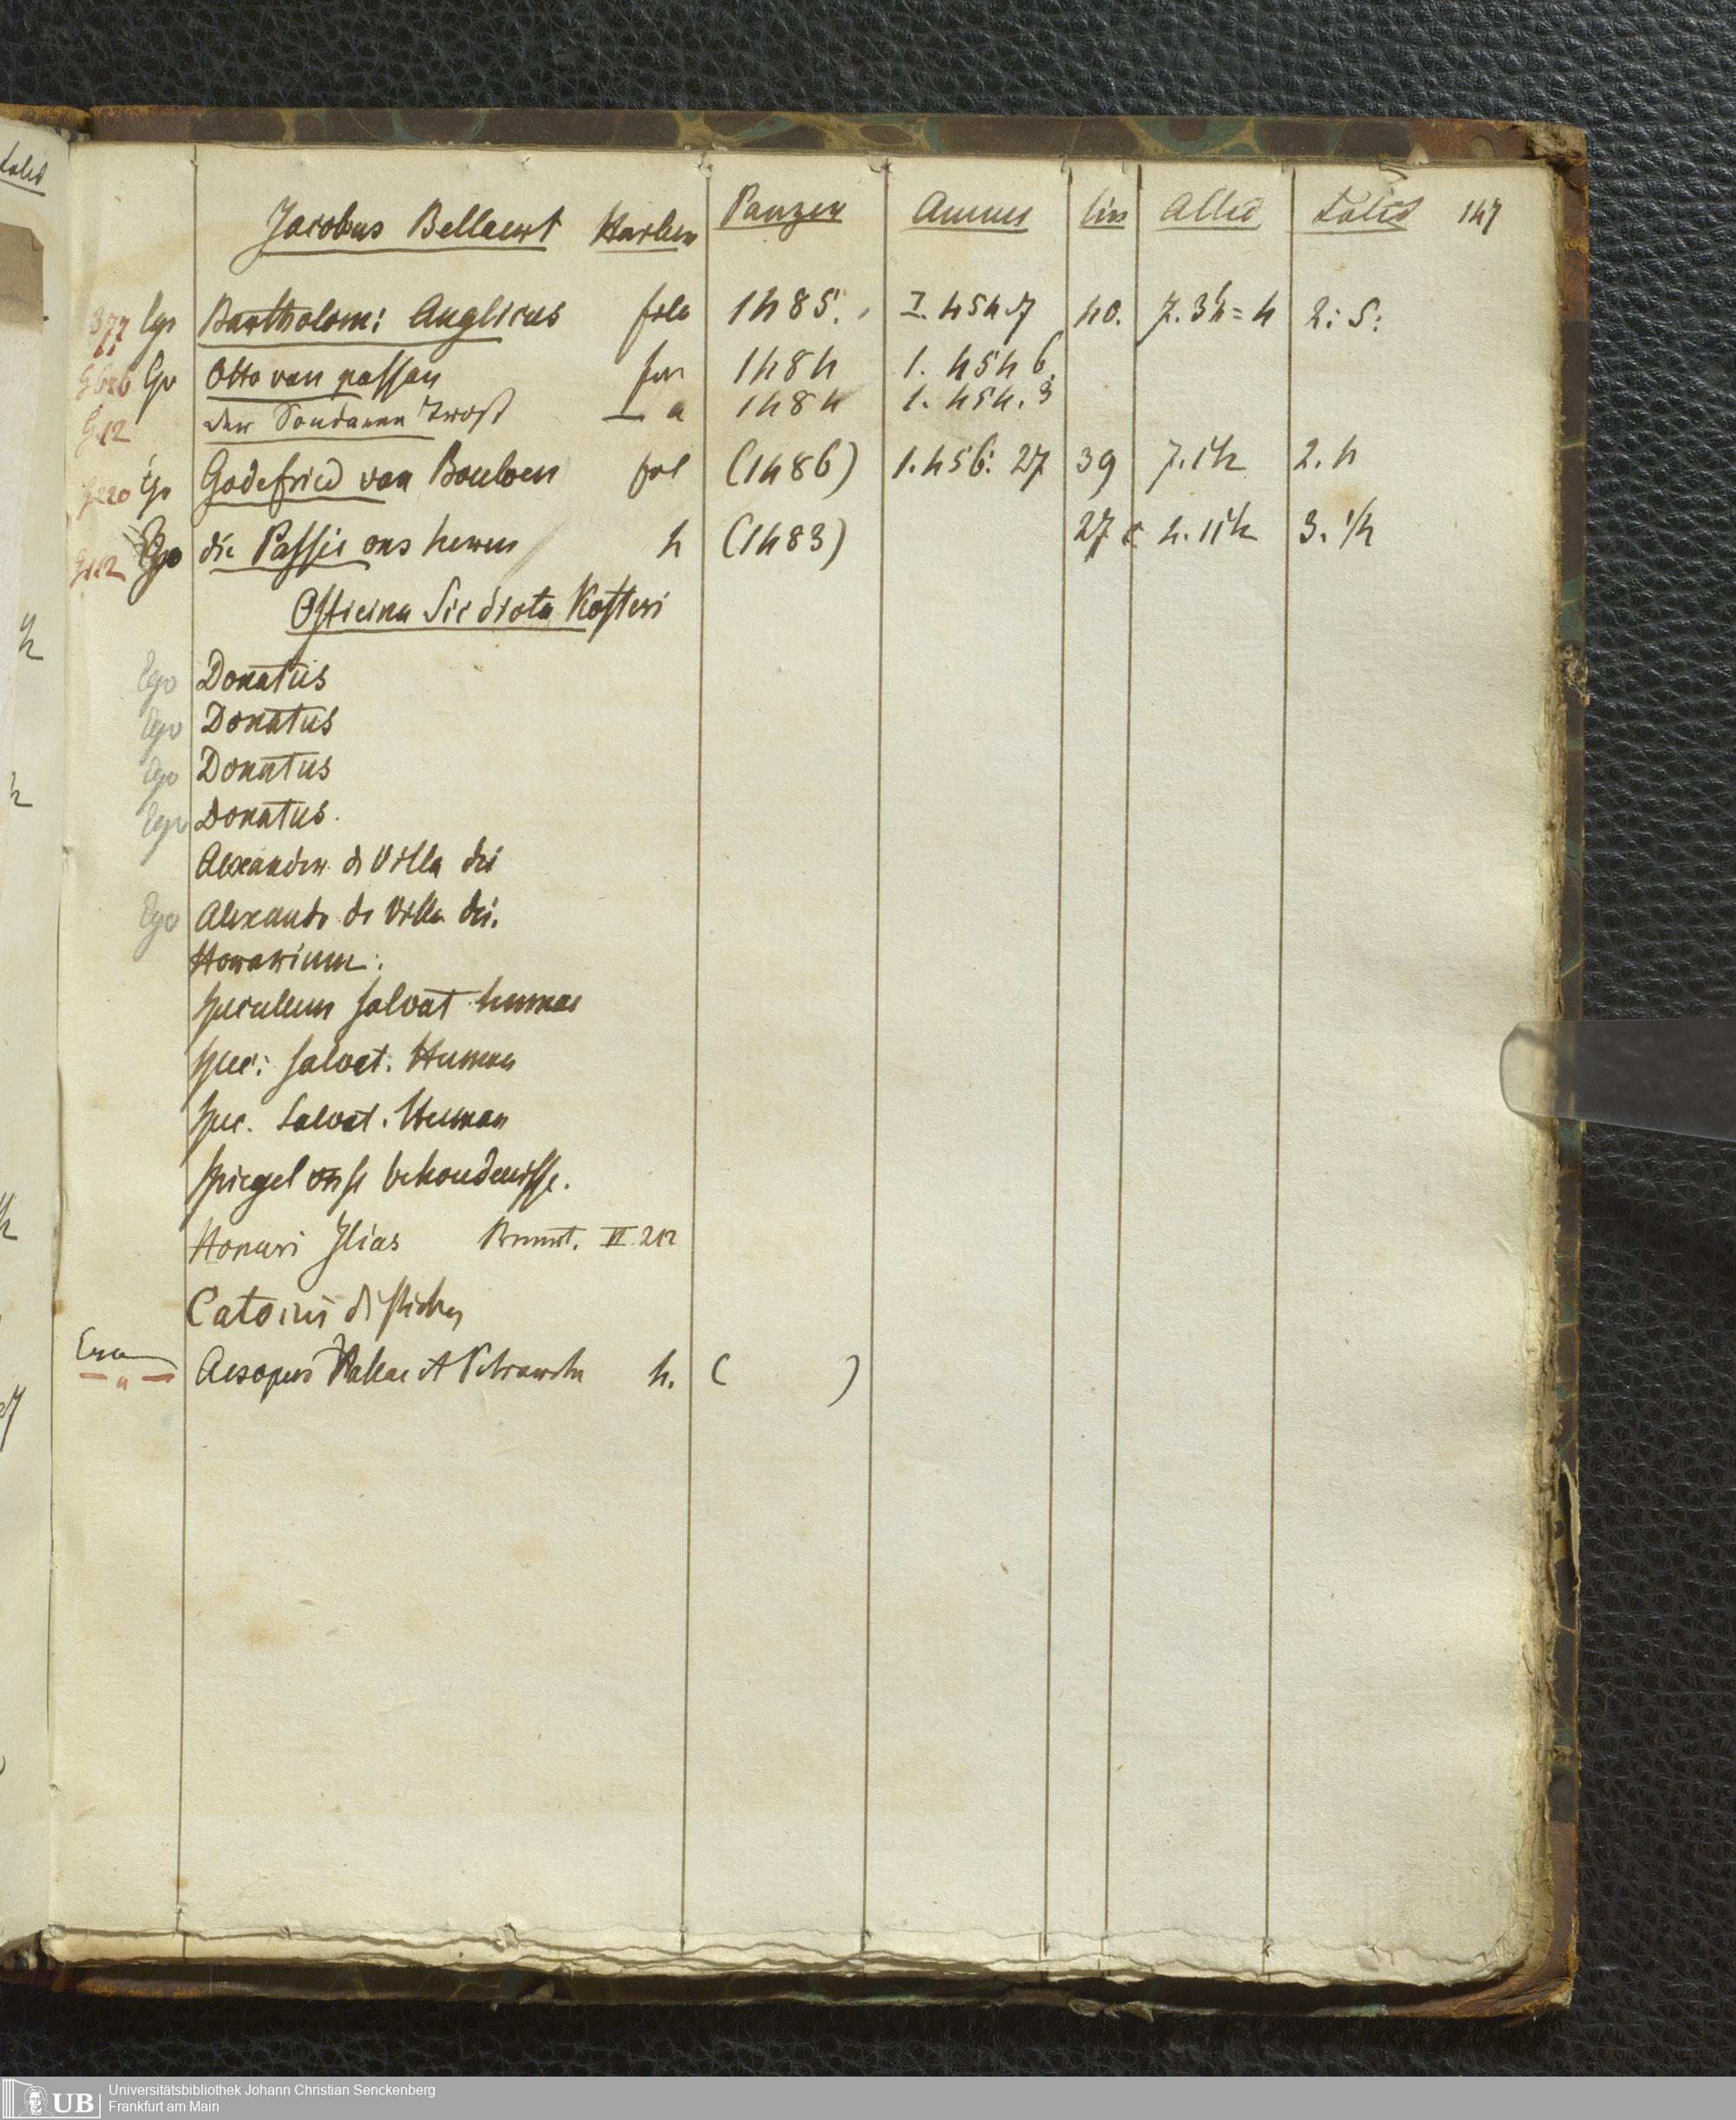 Jacobus Bellaert Harlem Panzer Annus lin Altid Latid 147
377 Ego Bartholom: Anglicus folo 1485. I. 454.7 40. 7. 3/4 = 4 2: 5:
Ego Otto van passau fol 1484 1. 454 6.
G 12 der Sondaren Trost — a 1484 1. 454. 3
G 220 Ego Godefried van Bouloen fol (1486) 1. 456: 27 39 7. 1/4 2. 4
Ego die Passie ons heren 4 (1483) 27 4. 11/4 3. 1/4
Officina Sic dicta Kosteri
Ego Donatus
Ego Donatus
Ego Donatus
Ego Donatus.
Alexander de Villa dei
Ego Alexandr de Villa dei.
Horarium:
speculum salvat humae
spec: salvat. Human
spec. Salvat. Human
spiegel onse behoudenisse.
Homeri Ilias
Catonis disticha
Aesopus Vallae et Petrarcha 4. ( )
Universitätsbibliothek Johann Christian Senckenberg
UB Frankfurt am Main